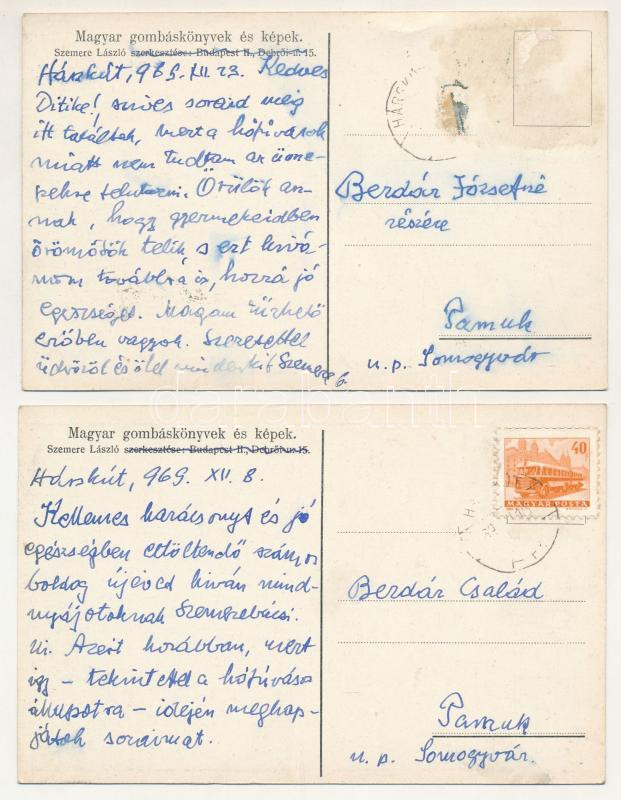 Magyar gombáskönyvek és képek.
Szemere László szerkesztése: Budapest II., Debrői-u. 15.
Hárskút, 969. XII. 23. Kedves
Ditike! szíves soraid még
itt találtak, mert a hófúvások
miatt nem tudtam az ünne-
pekre Örülök an-
nak, hogy gyermekeidben
örömötök telik, s ezt kivá-
nom továbbra is, hozzá jó
egészséget. Magam tűrhető
erőben vagyok. Szeretettel
üdvözöl és ölel mindenkit Szemere b.
HÁRSKÚT
Berdár Józsefné
részére
Pamuk
u. p. Somogyvár
darabanth
Magyar gombáskönyvek és képek.
Szemere László szerkesztése: Budapest II., Debrői-u. 15.
Hárskút, 969. XII. 8.
Kellemes karácsonyt és jó
egészségben eltöltendő számos
boldog újévet kiván mind-
nyájotoknak Szemerebácsi.
Ui. Azért korábban, mert
így – tekintettel a hófúvásos
állapotra – idején megkap-
játok soraimat.
40
MAGYAR POSTA
Berdár Család
Pamuk
u. p. Somogyvár.